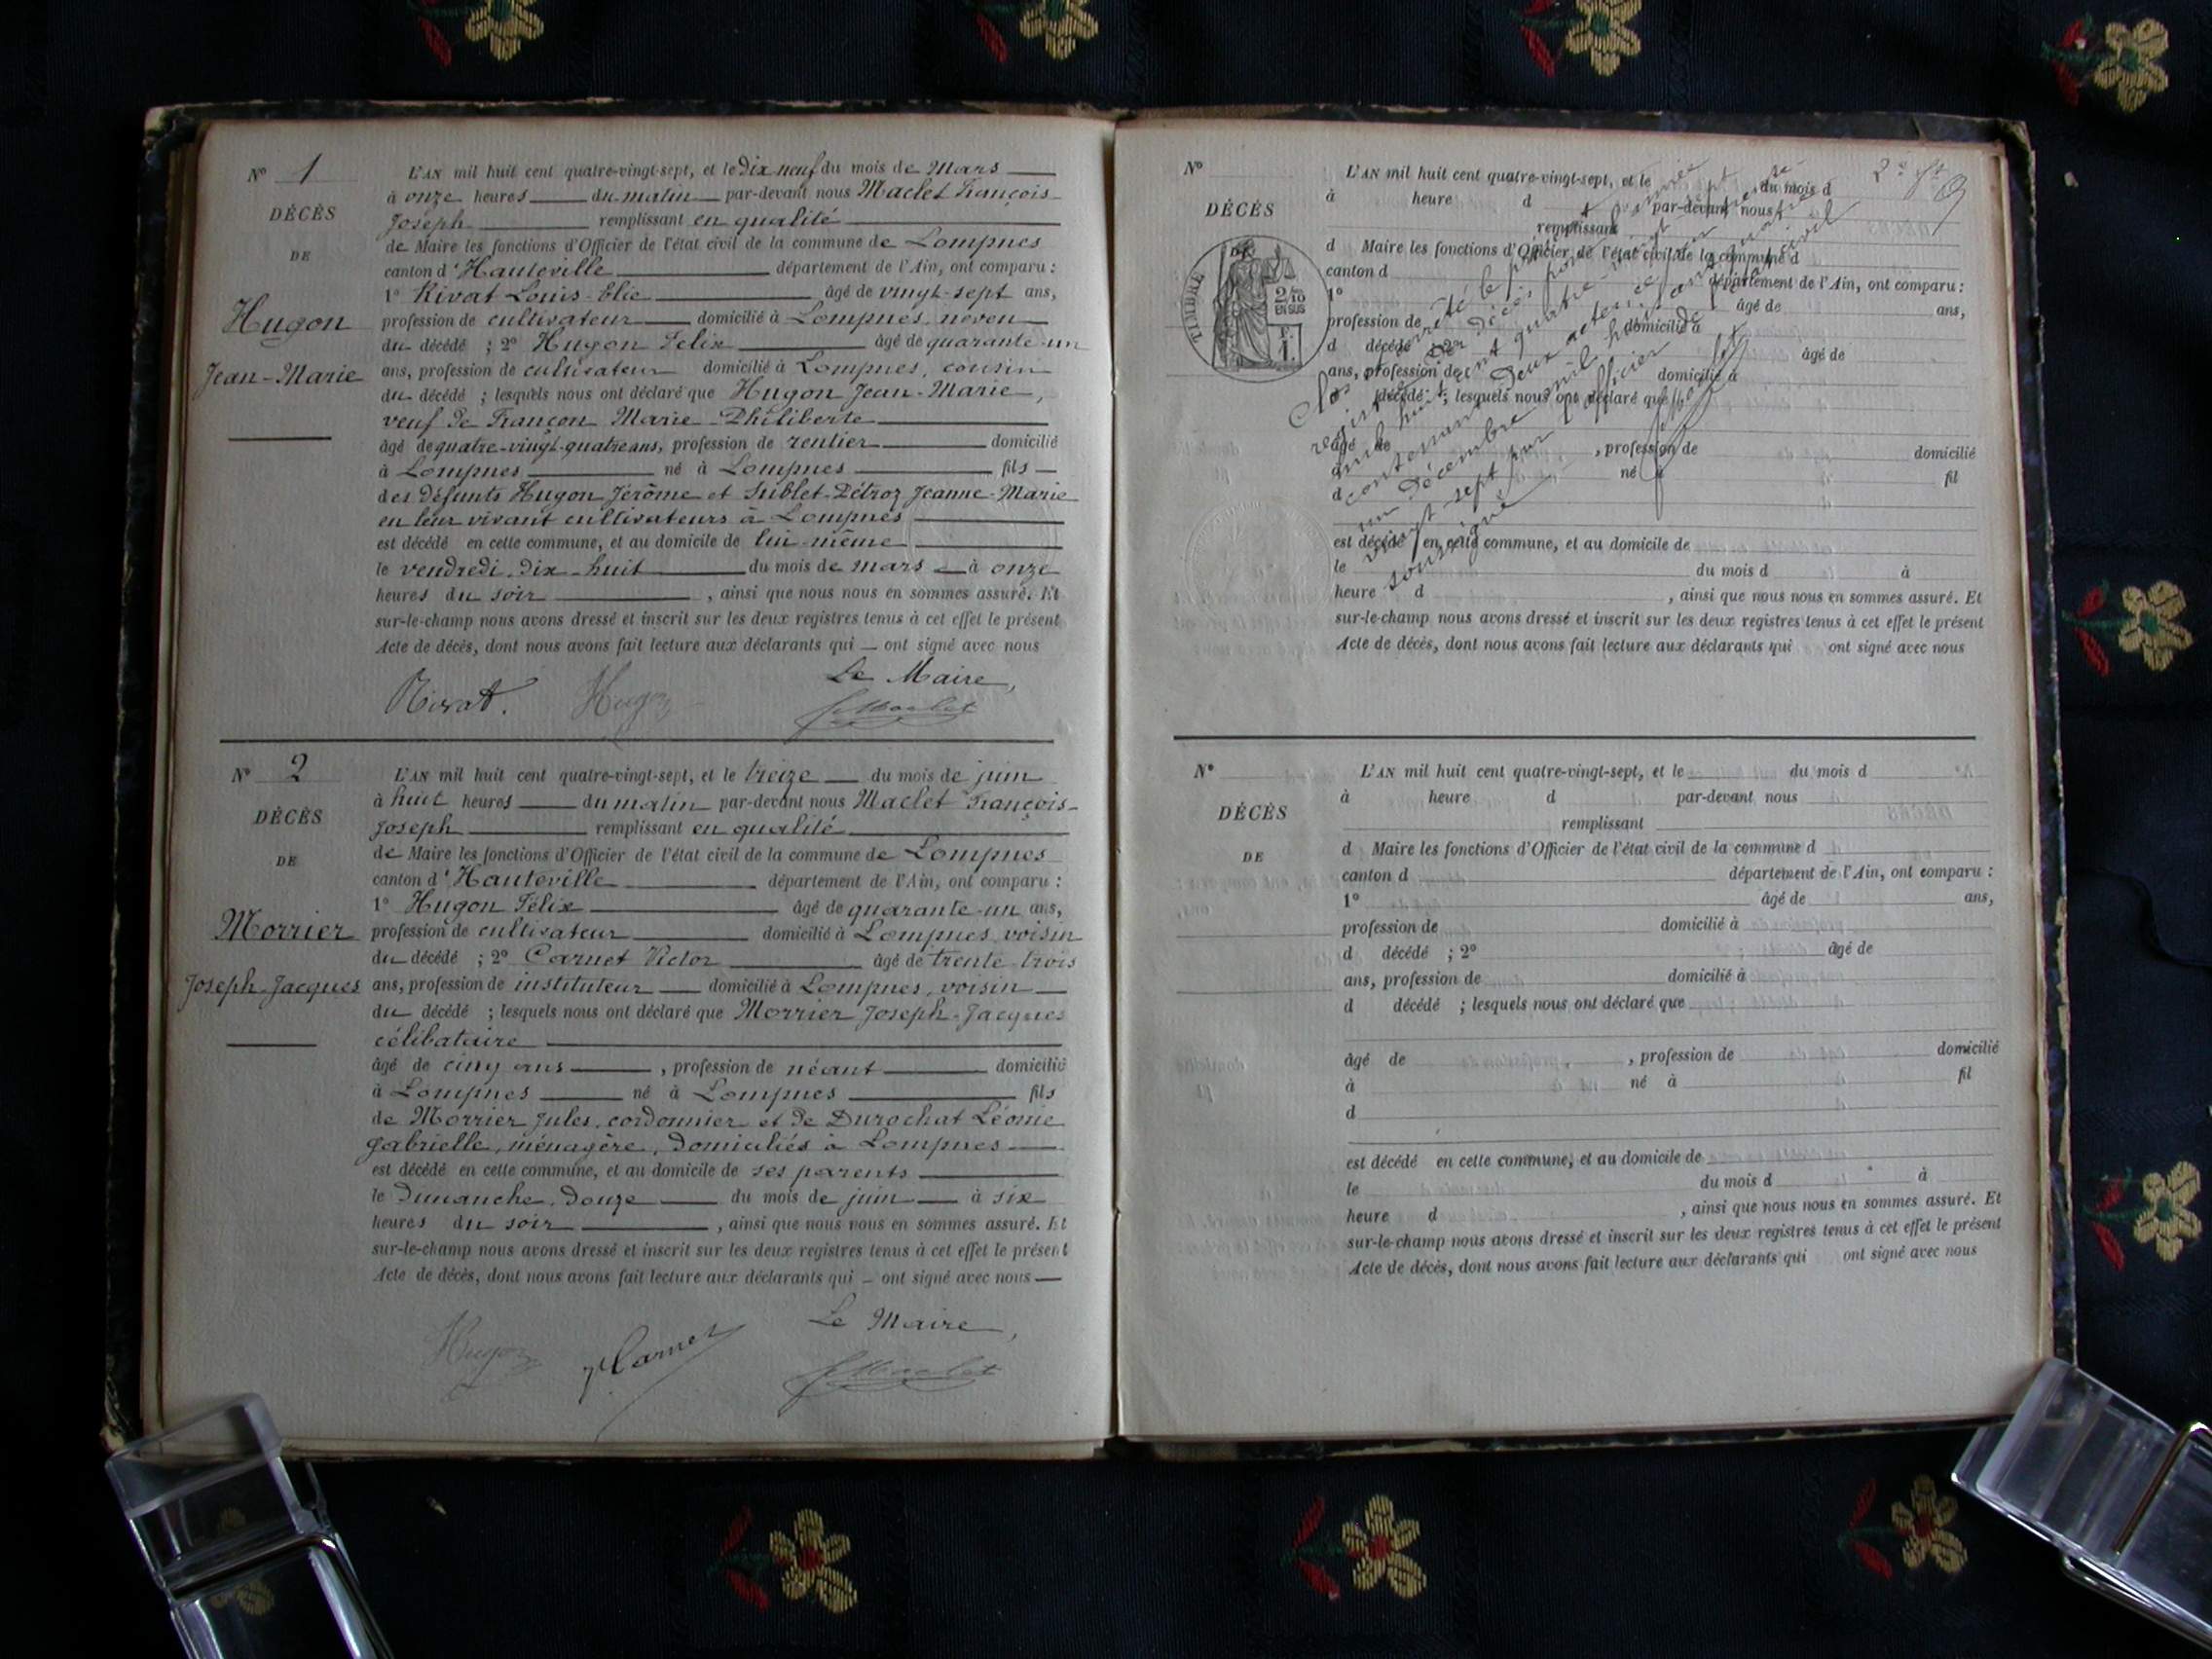 N° 1
DÉCÈS
DE
Hugon
Jean-Marie
L'AN mil huit cent quatre-vingt-sept, et le dix neuf du mois de Mars
à onze heures du matin par-devant nous Maclet François-
Joseph remplissant en qualité
de Maire les fonctions d'Officier de l'état civil de la commune de Lompnes
canton d'Hauteville département de l'Ain, ont comparu :
1° Rivat Louis-Elie âgé de vingt-sept ans,
profession de cultivateur domicilié à Lompnes, neveu
du décédé ; 2° Hugon Felix âgé de quarante-un
ans, profession de cultivateur domicilié à Lompnes, cousin
du décédé ; lesquels nous ont déclaré que Hugon Jean-Marie,
veuf de Françon Marie-Philiberte
âgé de quatre-vingt-quatre ans, profession de rentier domicilié
à Lompnes né à Lompnes fils
des défunts Hugon Jérôme et Sublet-Pétroz Jeanne-Marie
en leur vivant cultivateurs à Lompnes
est décédé en cette commune, et au domicile de lui-même
le vendredi, dix-huit du mois de mars à onze
heures du soir , ainsi que nous nous en sommes assuré. Et
sur-le-champ nous avons dressé et inscrit sur les deux registres tenus à cet effet le présent
Acte de décès, dont nous avons fait lecture aux déclarants qui — ont signé avec nous
Le Maire,
Rivat. Hugon fMaclet
N° 2
DÉCÈS
DE
Morrier
Joseph-Jacques
L'AN mil huit cent quatre-vingt-sept, et le treize du mois de juin
à huit heures du matin par-devant nous Maclet François-
Joseph remplissant en qualité
de Maire les fonctions d'Officier de l'état civil de la commune de Lompnes
canton d'Hauteville département de l'Ain, ont comparu :
1° Hugon Félix âgé de quarante-un ans,
profession de cultivateur domicilié à Lompnes, voisin
du décédé ; 2° Carnet Victor âgé de trente-trois
ans, profession de instituteur domicilié à Lompnes, voisin
du décédé ; lesquels nous ont déclaré que Morrier Joseph-Jacques
célibataire
âgé de cinq ans , profession de néant domicilié
à Lompnes né à Lompnes fils
de Morrier Jules, cordonnier et de Durochat Léonie
Gabrielle, ménagère, domiciliés à Lompnes
est décédé en cette commune, et au domicile de ses parents
le Dimanche, douze du mois de juin à six
heures du soir , ainsi que nous nous en sommes assuré. Et
sur-le-champ nous avons dressé et inscrit sur les deux registres tenus à cet effet le présent
Acte de décès, dont nous avons fait lecture aux déclarants qui — ont signé avec nous
Le Maire,
Hugon VCarnet fMaclet
N°
DÉCÈS
DE
TIMBRE
2/10
EN SUS
L'AN mil huit cent quatre-vingt-sept, et le du mois d
à heure d par-devant nous
remplissant
d Maire les fonctions d'Officier de l'état civil de la commune d
canton d département de l'Ain, ont comparu :
1° âgé de ans,
profession de domicilié à
d décédé ; 2° âgé de
ans, profession de domicilié à
d décédé ; lesquels nous ont déclaré que
âgé de , profession de domicilié
à né à fil
d
est décédé en cette commune, et au domicile de
le du mois d à
heure d , ainsi que nous nous en sommes assuré. Et
sur-le-champ nous avons dressé et inscrit sur les deux registres tenus à cet effet le présent
Acte de décès, dont nous avons fait lecture aux déclarants qui ont signé avec nous
Clos et arrêté le présent
registre des Décès pour l'année
mil huit cent quatre-vingt sept
contenant deux actes, ce jour trente
un Décembre mil huit cent quatre
vingt-sept par l'officier de l'état civil
soussigné
fMaclet
N°
DÉCÈS
DE
L'AN mil huit cent quatre-vingt-sept, et le du mois d
à heure d par-devant nous
remplissant
d Maire les fonctions d'Officier de l'état civil de la commune d
canton d département de l'Ain, ont comparu :
1° âgé de ans,
profession de domicilié à
d décédé ; 2° âgé de
ans, profession de domicilié à
d décédé ; lesquels nous ont déclaré que
âgé de , profession de domicilié
à né à fil
d
est décédé en cette commune, et au domicile de
le du mois d à
heure d , ainsi que nous nous en sommes assuré. Et
sur-le-champ nous avons dressé et inscrit sur les deux registres tenus à cet effet le présent
Acte de décès, dont nous avons fait lecture aux déclarants qui ont signé avec nous